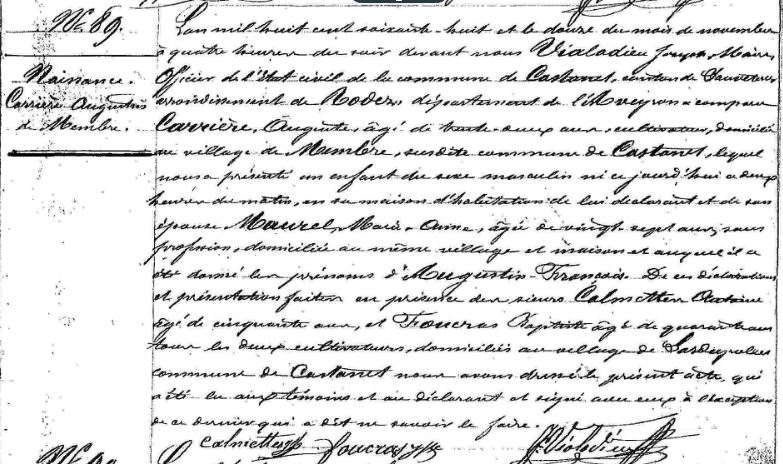 No. 89.
Naissance.
Carrière Augustin
de Membre.
L'an mil huit cent soixante-huit et le douze du mois de novembre
à quatre heures du soir devant nous Vialadieu Joseph, Maire,
Officier de l'état civil de la commune de Castanet, canton de Sauveterre
arrondissement de Rodez, département de l'Aveyron a comparu
Carrière, Auguste, âgé de trente-deux ans, cultivateur, domicilié
au village de Membre, susdite commune de Castanet, lequel
nous a présenté un enfant du sexe masculin né ce jourd'hui à deux
heures du matin, en sa maison d'habitation de lui déclarant et de son
épouse Maurel, Marie-Anne, âgée de vingt-sept ans, sans
profession, domiciliée au même village et maison et auquel il a
été donné les prénoms d'Augustin François. De ces déclarations
et présentation faites en présence des sieurs Calmettes Antoine
âgé de cinquante ans, et Foucras Baptiste âgé de quarante ans
tous les deux cultivateurs, domiciliés au village de
commune de Castanet nous avons dressé le présent acte, qui
a été lu aux témoins et au déclarant et signé avec eux à l'exception
de ce dernier qui a dit ne savoir le faire.
Calmettes Foucras J. Vialadieu